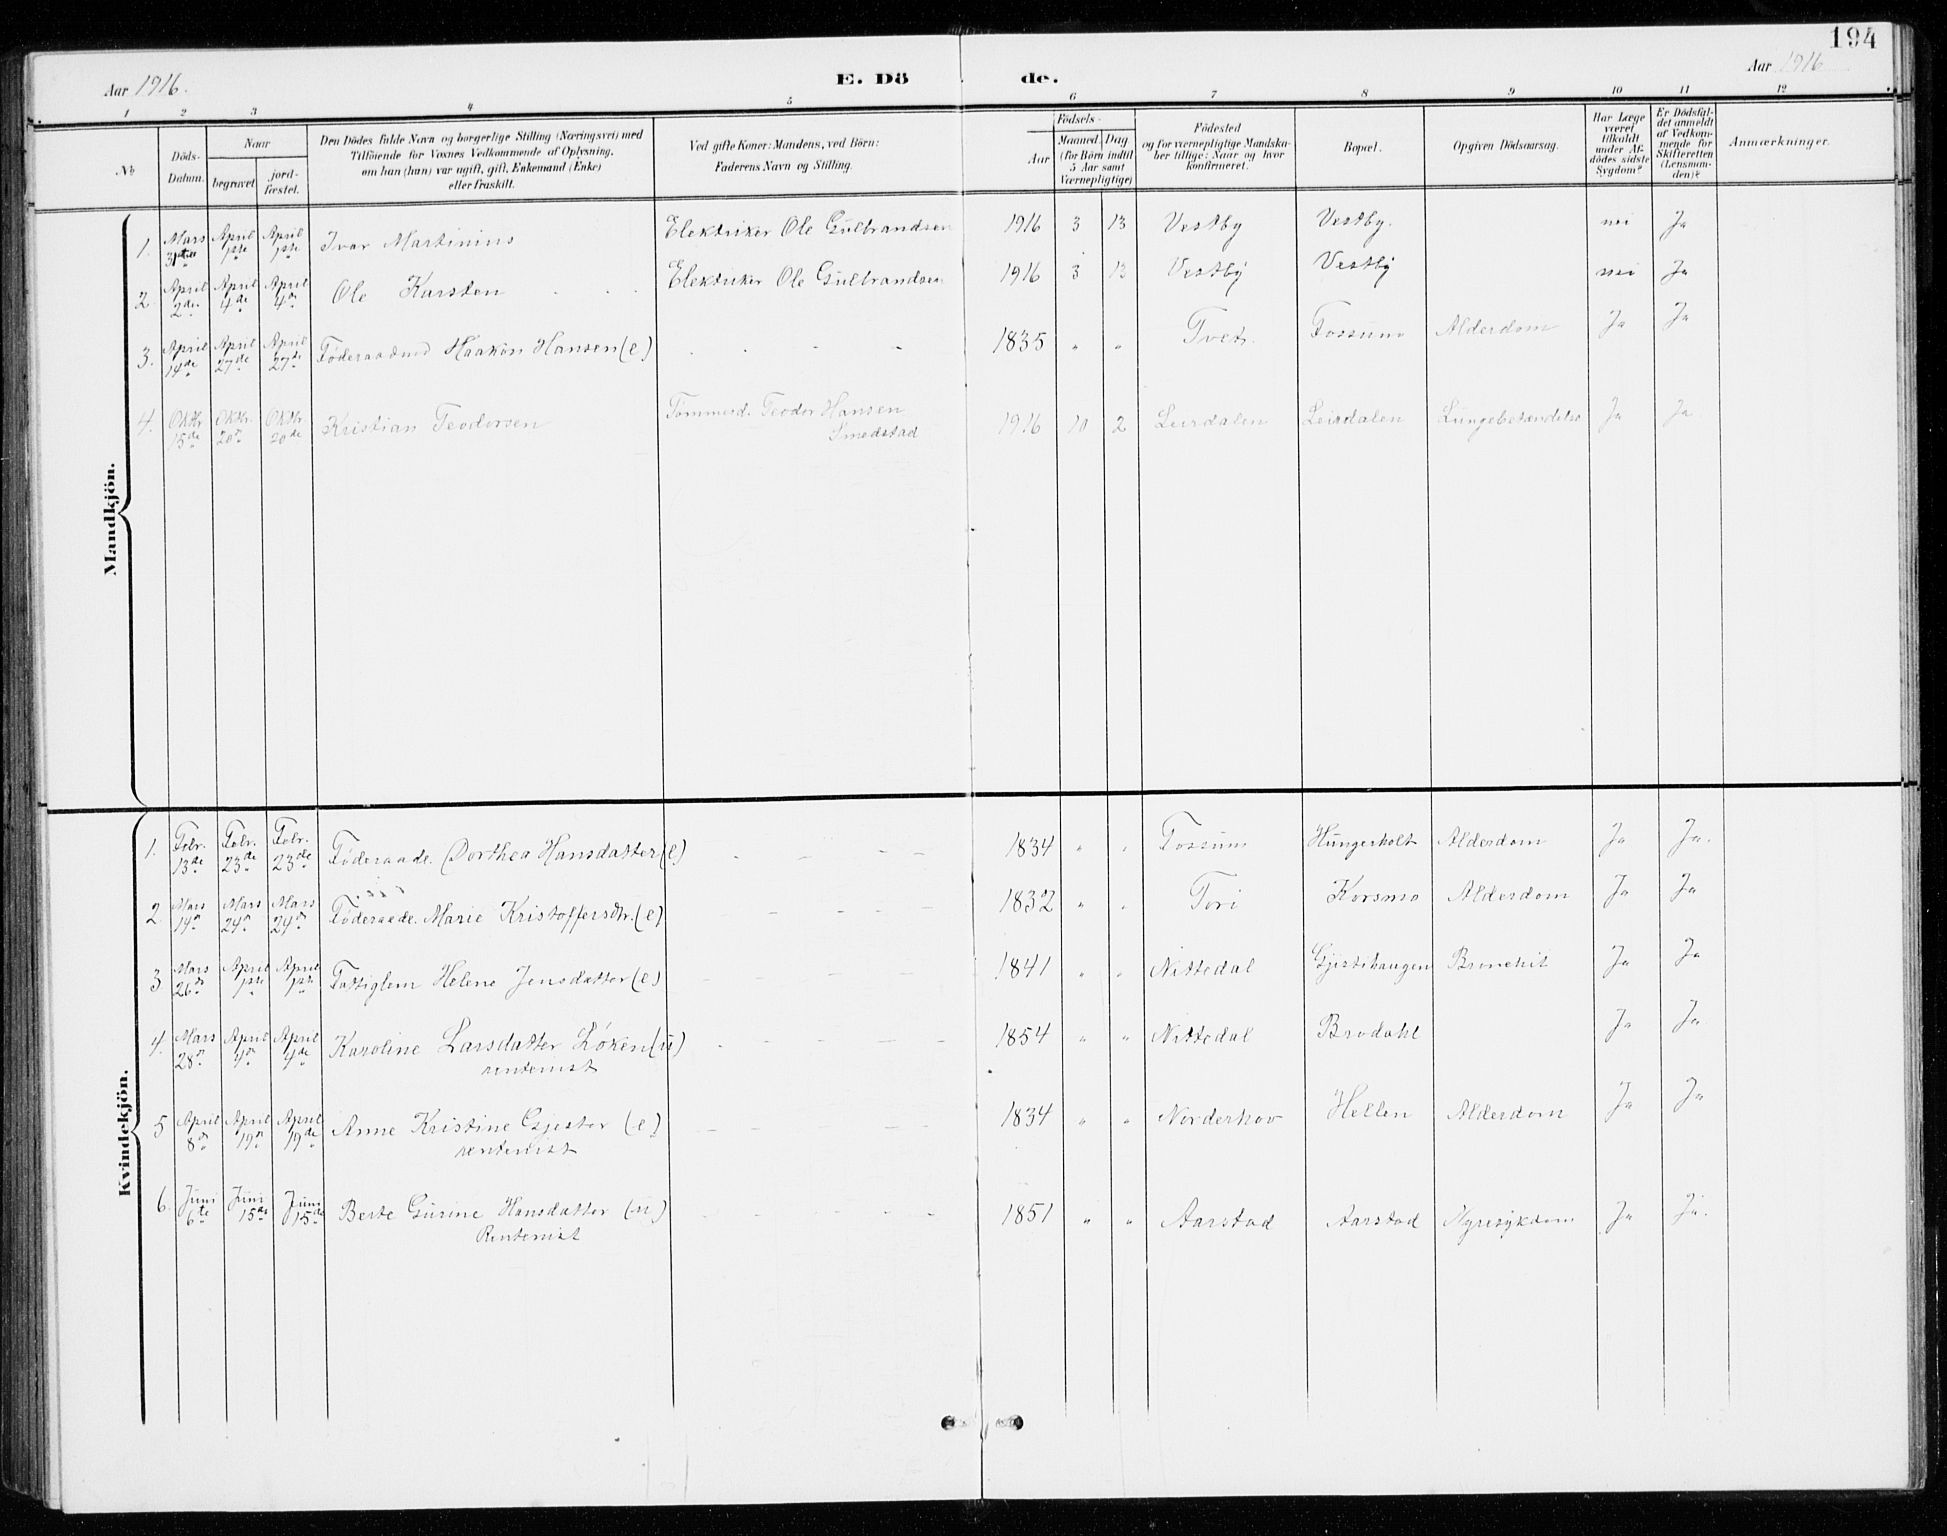 194
Aar 1916. E. Dö de. Aar 1916
1 2 3 4 5 6 7 8 9 10 11 12
No
Döds-
Datum.
Naar
begravet.
jord-
fæstet.
Den Dödes fulde Navn og borgerlige Stilling (Næringsvei) med
Tilföiende for Voxnes Vedkommende af Oplysning,
om han (hun) var ugift, gift, Enkemand (Enke)
eller fraskilt.
Ved gifte Koner: Mandens, ved Börn:
Faderens Navn og Stilling.
Födsels-
Aar
Maaned. Dag
(for Börn indtil
5 Aar samt
Værnepligtige)
Födested
og for værnepligtige Mandska-
ber tillige: Naar og hvor
konfirmeret.
Bopæl.
Opgiven Dödsaarsag.
Har Læge
været
tilkaldt
under Af-
dödes sidste
Sygdom?
Er Dödsfal-
det anmeldt
af Vedkom-
mende for
Skifteretten
(Lensman-
den)?
Anmærkninger.
Mandkjön.
1. Mars 31te April 1ste April 1ste Ivar Martinius Elektriker Ole Gulbrandsen 1916 3 13 Vestby Vestby. nei Ja
2 April 2de April 4de April 4de Ole Karsten Elektriker Ole Gulbrandsen 1916 3 13 Vestby Vestby nei Ja
3. April 14de April 27de April 27de Føderaadmd Haakon Hansen (e) - - - 1835 " " Tvet. Fossum Alderdom Ja Ja
4. Oktbr 15de Oktbr. 20n Oktbr 20de Kristian Teodorsen Tømmesd. Teodor Hansen 1916 10 2 Leirdalen Leirdalen Lungebetændelse Ja Ja
Smedstad
Kvindekjön.
1. Febr. 13de Febr. 23de Febr. 23de Føderaade. Dorthea Hansdatter (e) - - - 1834 " " Fossum Hungerholt Alderdom Ja Ja.
2 Mars 14n Mars 24n Mars 24n Føderaade. Marie Kristoffersdtr. (e) - - - 1832 " " Korsmo Alderdom Ja Ja
3 Mars 26n April 1ste April 1ste Fattiglem Helene Jensdatter (e) - - - 1841 " " Nittedal Ja Ja
4. Mars 28n April 4n April 4de Karoline Larsdatter Løken (u) - - - 1854 " " Nittedal Brodahl Ja Ja
rentenist
5 April 8n April 19n April 19de Anne Kristine Gjester (e) - - - 1834 " " Norderhov Hellen Alderdom Ja Ja
rentenist
6. Juni 6te Juni 15de Juni 15de Berte Gurine Hansdatter (u) - - - 1851 " " Aarstad Aarstad Nyresykdom Ja Ja.
Rentenist